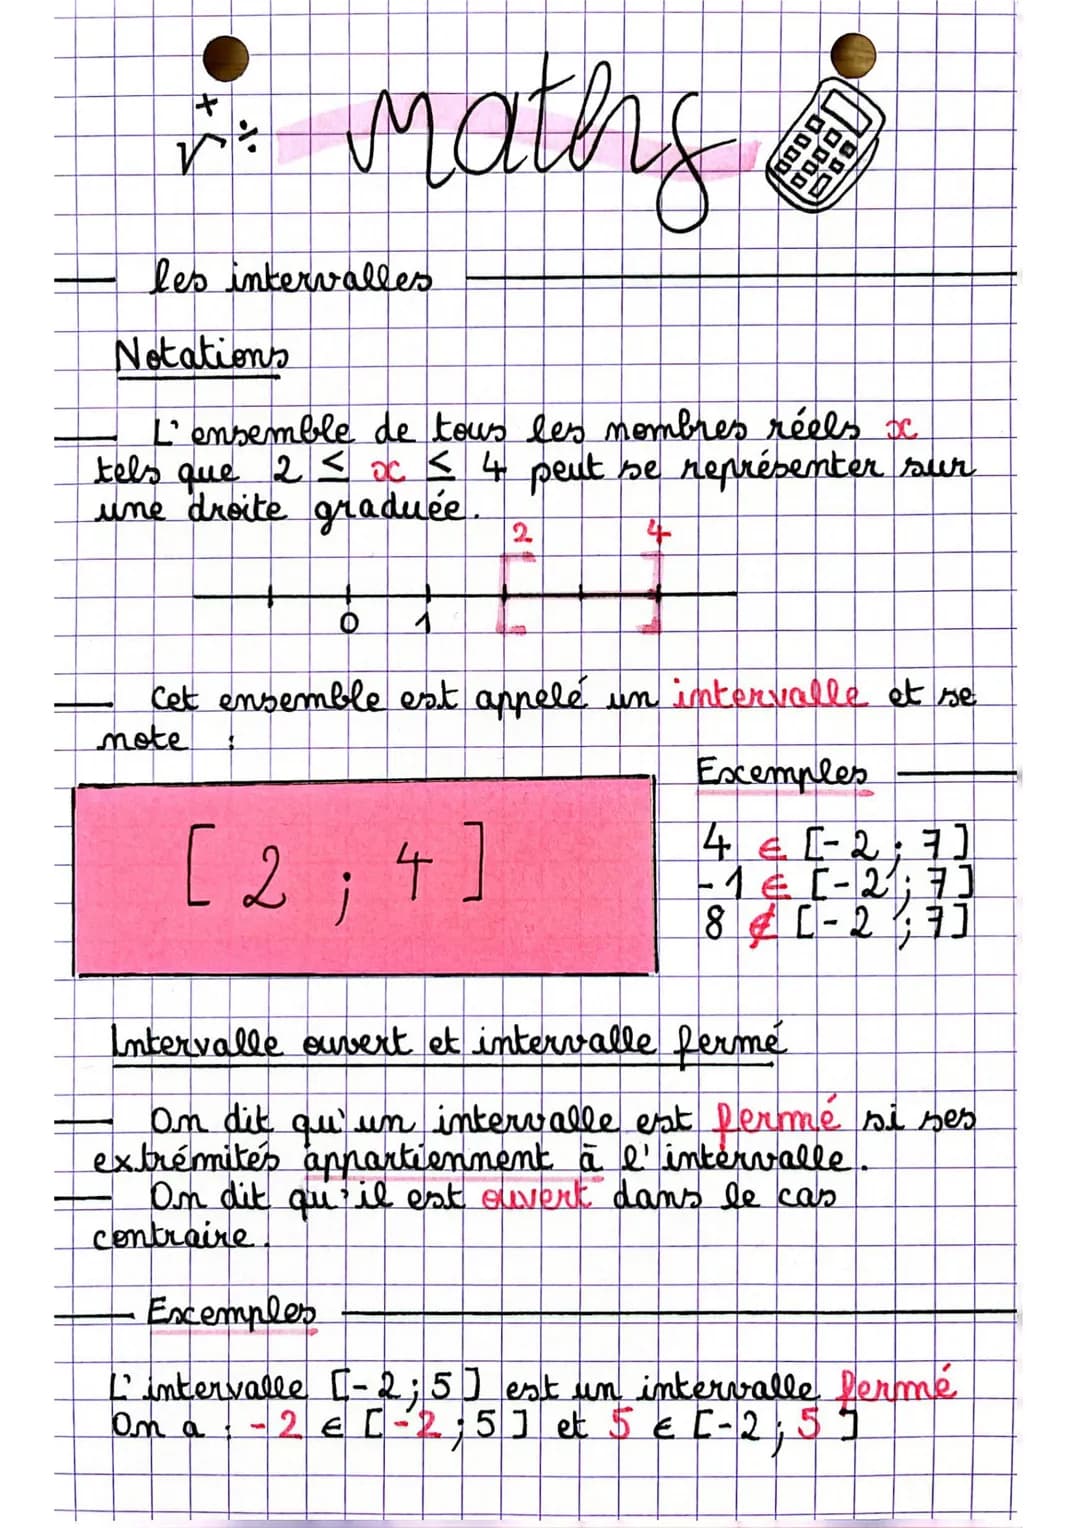 +
√ ÷
Maths
les intervalles
Notations
L'ensemble de tous les nombres réels x
tels que 2 ≤ x ≤ 4 peut se représenter sur
une droite graduée.
2 4
0 1
Cet ensemble est appelé un intervalle et se
note :
[ 2 ; 4 ]
Exemples
4 ∈ [-2 ; 7]
-1 ∈ [-2 ; 7]
8 ∉ [-2 ; 7]
Intervalle ouvert et intervalle fermé
On dit qu'un intervalle est fermé si ses
extrémités appartiennent à l'intervalle.
On dit qu'il est ouvert dans le cas
contraire.
Exemples
L'intervalle [-2 ; 5] est un intervalle fermé
On a : -2 ∈ [-2 ; 5] et 5 ∈ [-2 ; 5]